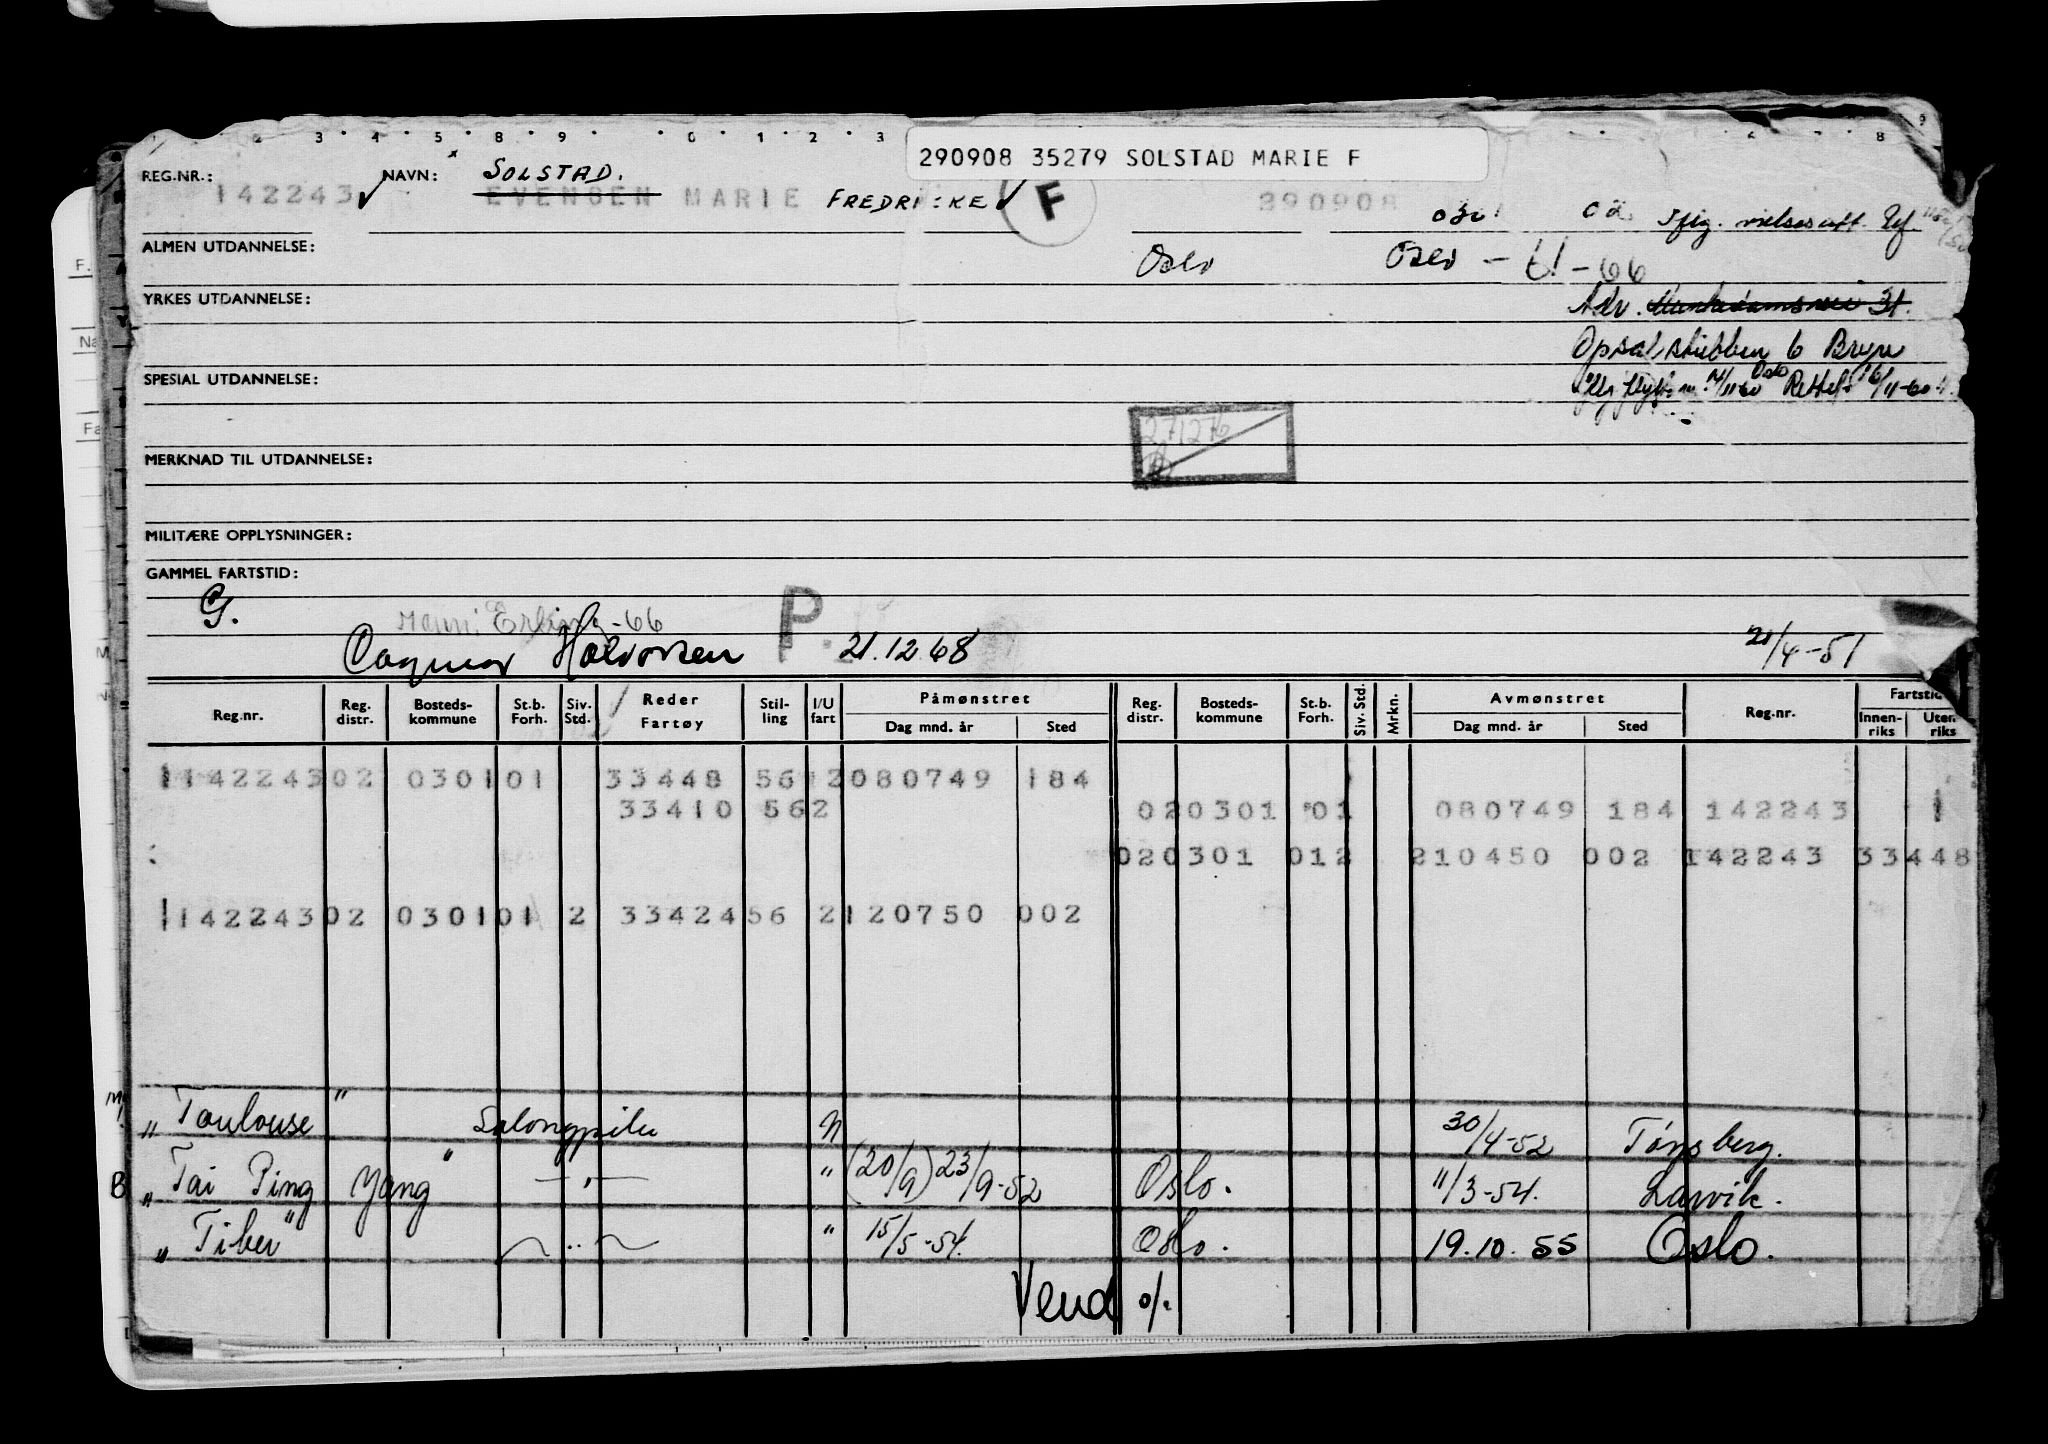 290908 35279 SOLSTAD MARIE F
REG.NR.: 142243 NAVN: SOLSTAD.
EVENSEN MARIE FREDRIKKE F 290908
030 02 Ifig. vielsesatt.
ALMEN UTDANNELSE: Oslo Oslo - 61 - 66
YRKES UTDANNELSE: Adr. Munkedamsvei 31.
Opsalstubben 6 Bryn
SPESIAL UTDANNELSE: Oslo 16/11-60
271276
MERKNAD TIL UTDANNELSE:
MILITÆRE OPPLYSNINGER:
GAMMEL FARTSTID:
G.
Erling -66
Dagmar Halvorsen P. 21.12.68 21/4-51
Reg.nr. Reg. distr. Bosteds-kommune St.b. Forh. Siv. Std. Reder Fartøy Stil-ling I/U fart Påmønstret Dag mnd. år Sted Reg. distr. Bosteds-kommune St.b. Forh. Siv. Std. Mrkn. Avmønstret Dag mnd. år Sted Reg.nr. Fartstid Innen-riks Uten riks
114224302 030101 33448 5612080749 184
33410 562 020301 01 080749 184 142243 1
020301 012 210450 002 142243 33448
114224302 030101 2 3342456 2120750 002
"Toulouse" Salongpike N 30/4-52 Tønsberg.
"Tai Ping Yang" -"- " (20/9) 23/9-52 Oslo. 11/3-54. Larvik.
"Tiber" -"- " 15/5-54. Oslo. 19.10.55 Oslo.
Vend o/.